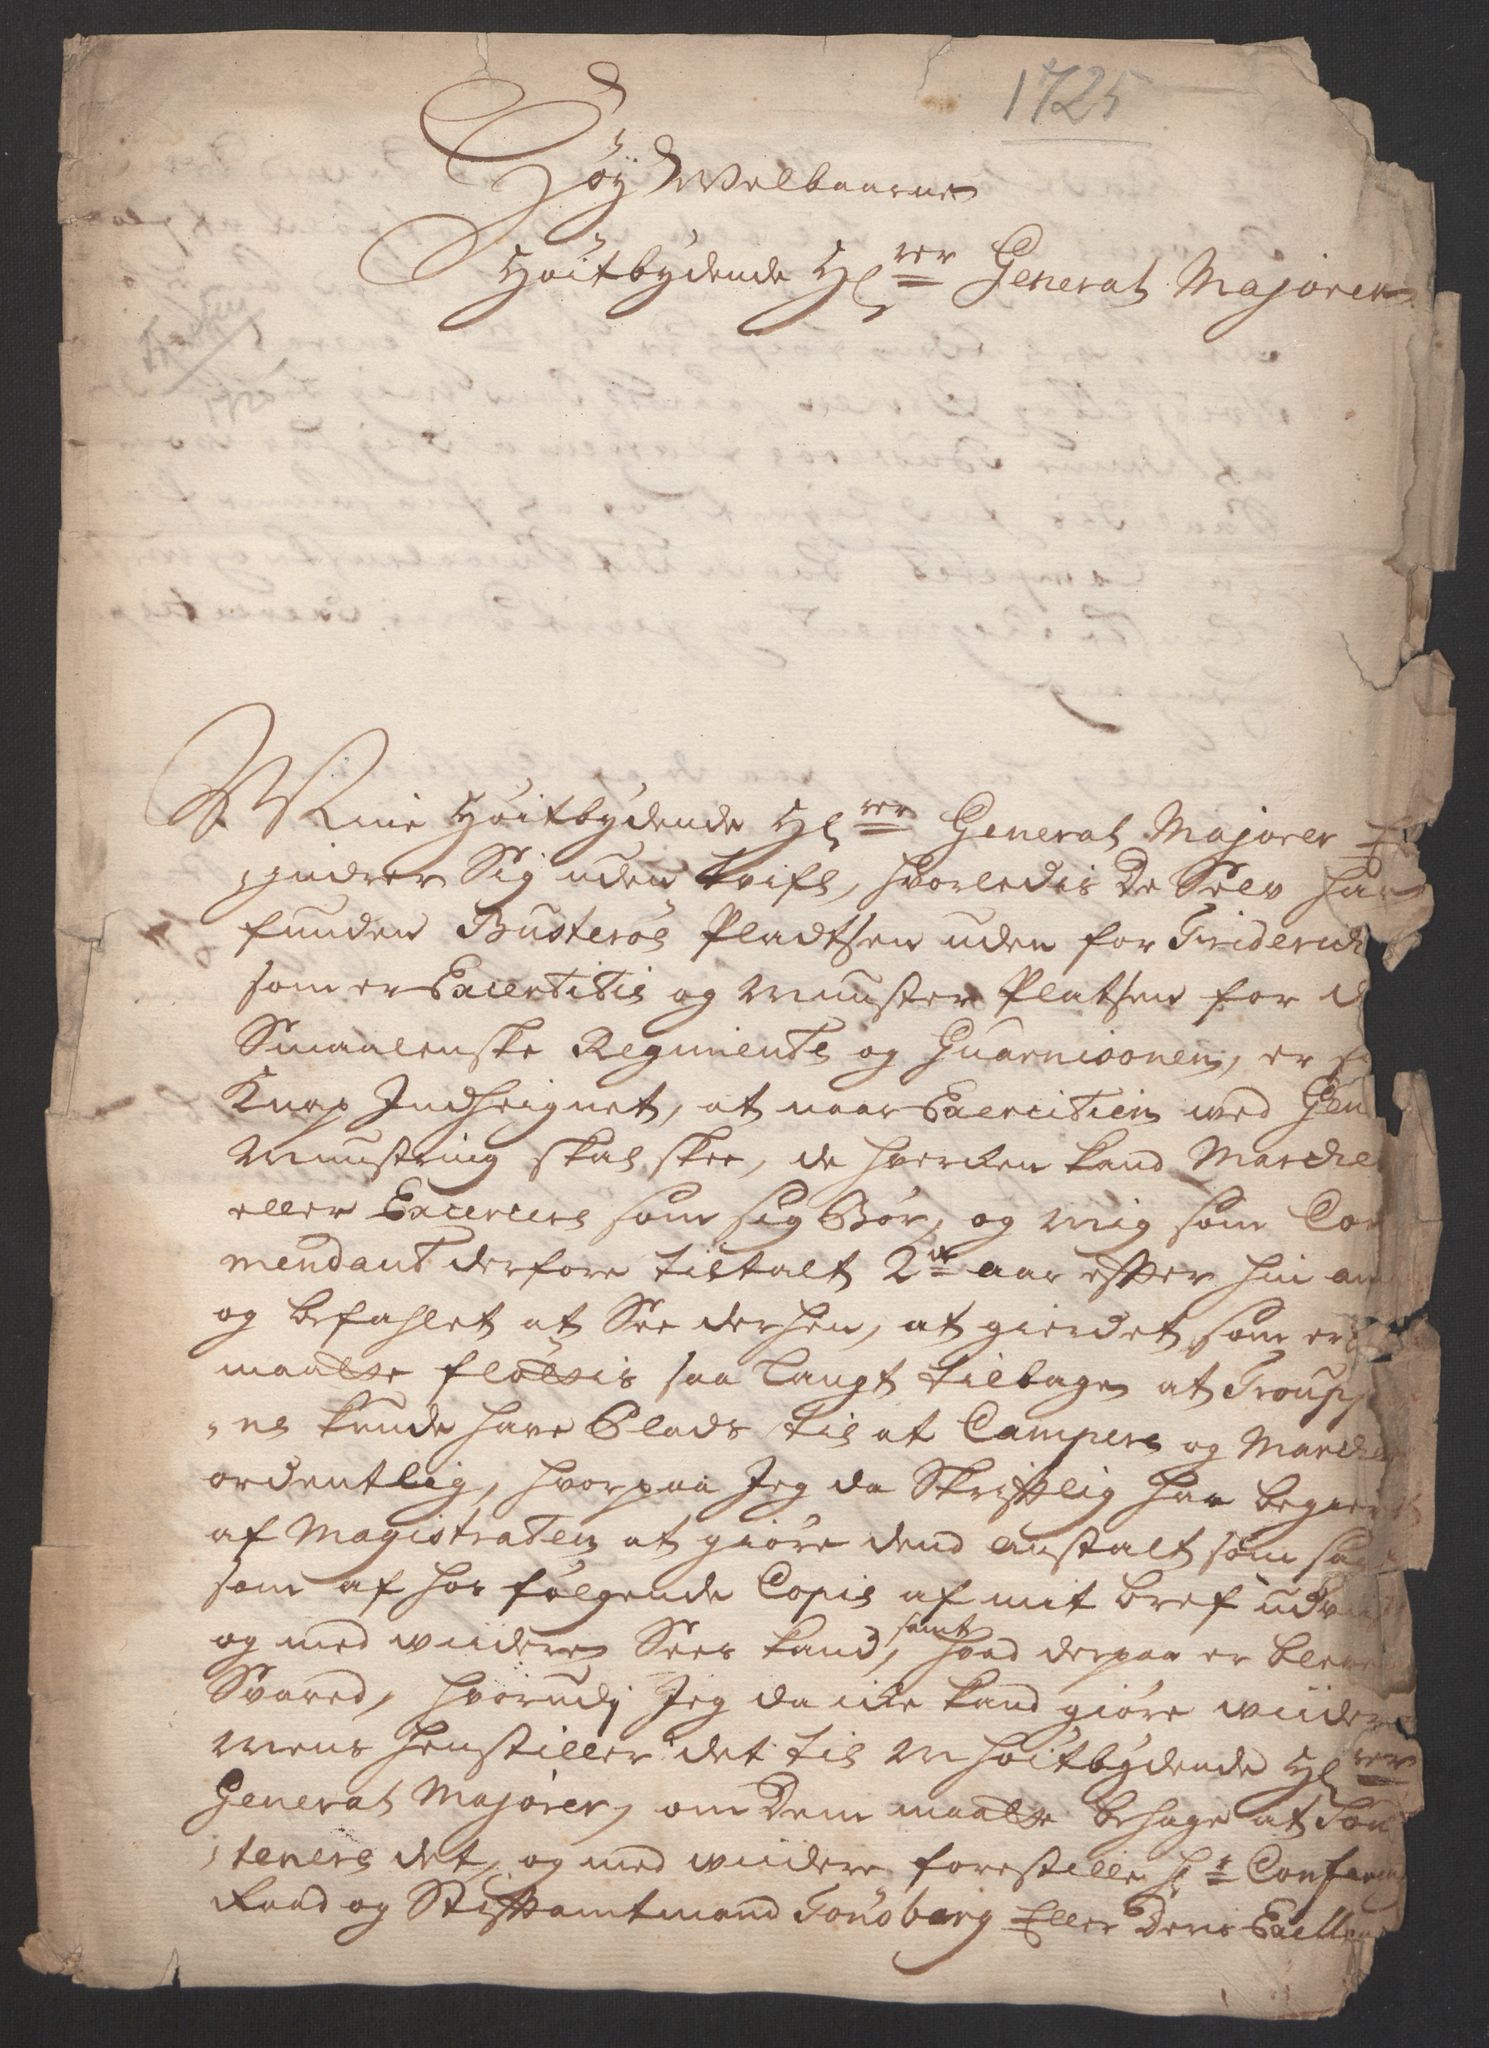 1725
Høy Welbaarne
Høitbydende Hrer General Majorer
Mine Høitbydende Hrer General Majorer E
indrer Sig uden tvifl, hvorledis De Selv har
funden Busterøs Pladtsen uden for Friderich
som er Excertitis og Mynster Platsen for d
Smaalenske Regimente og Guarnisonen, er
Knap Indheignet, at naar Exercitien ved Gen
Mynstring skal skee, de hverken kand Marche
eller Excercere som sig Bør, og mig som Com
mendant derfore tiltalt 2de aar effter hin an
og befahlet at See derhen, at gierdet som er
maatte fløttis saa langt tilbage at Troupp
ne kunde have Plads til at Campere og Marche
ordentlig, hvorpaa Jeg da Skrifftlig har begier
af Magistraten at giøre dend anstalt som
som af hos følgende Copie af mit bref udviis
og med viidere Sees kand, samt hvad derpaa er bleven
Svared, hvorudj Jeg da icke kand giøre viidere
Mens henstiller det til M høitbydende Hrer
General Majorer, om Dem maatte behage at Sou
tenere det, og med viidere forestille Hr Conferenz
Raad og Stifftamtmand Tonsberg Eller Deris Excellen